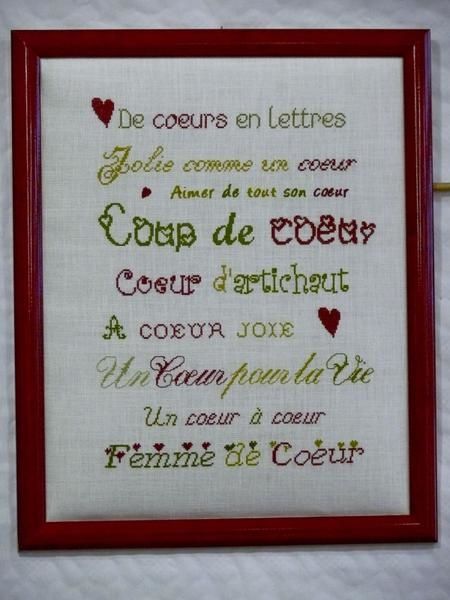 De coeurs en lettres
Jolie comme un coeur
Aimer de tout son coeur
Coup de coeur
Coeur d'artichaut
A COEUR JOIE
Un Coeur pour la Vie
Un coeur à coeur
Femme de Coeur